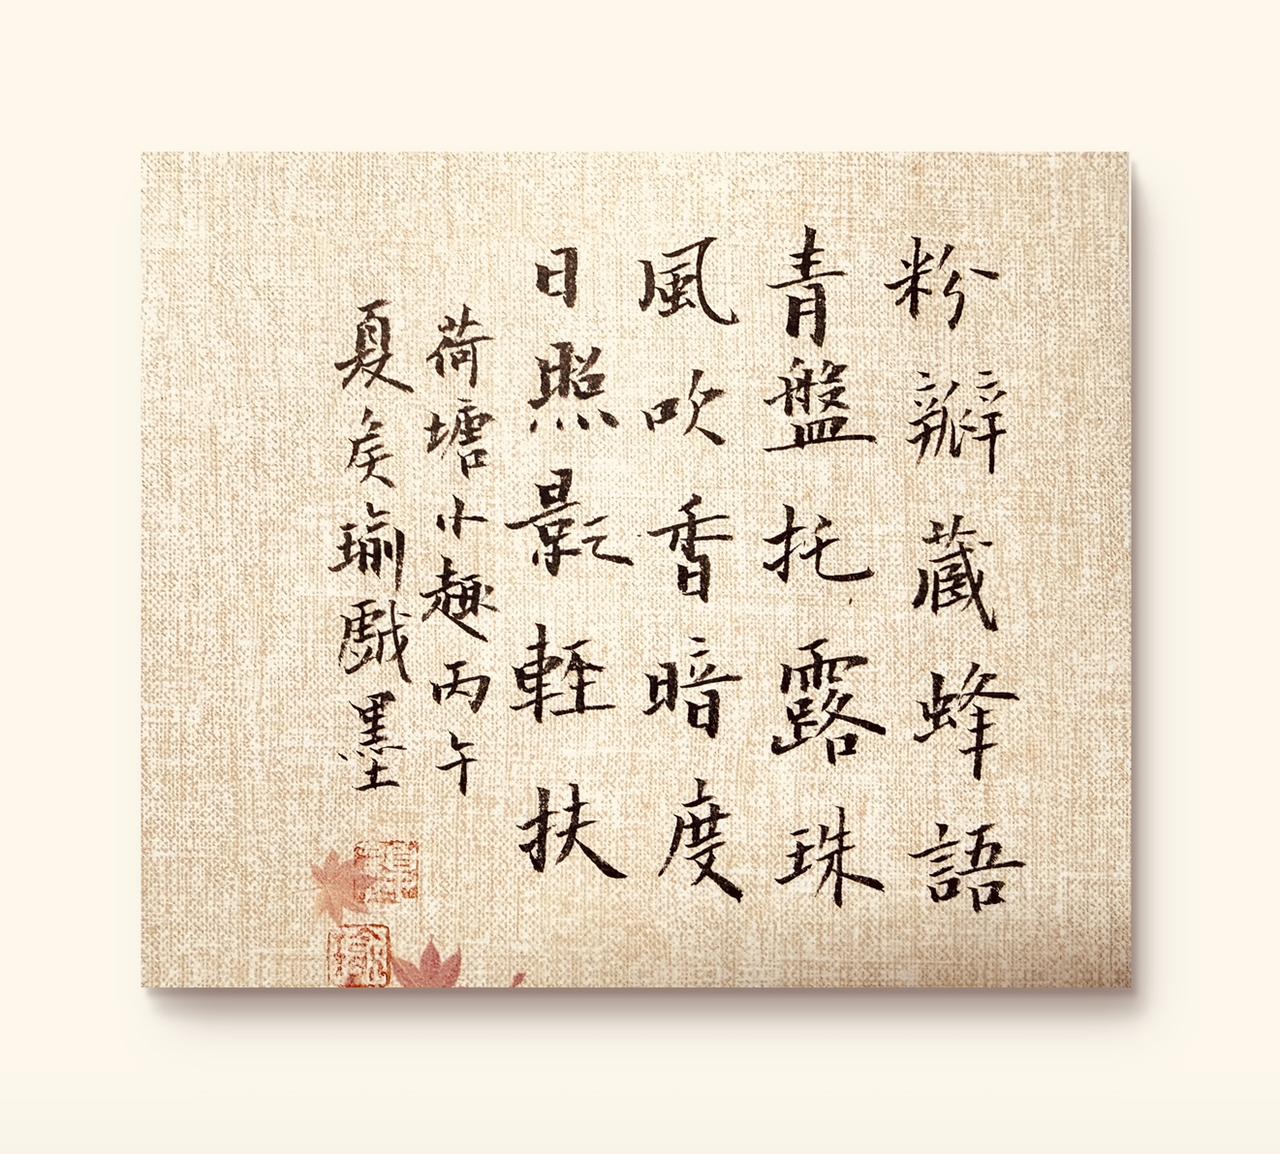 粉瓣蔵蜂語
青盤托露珠
風吹香暗度
日照影輕扶
荷塘小趣丙午
夏矣瑜戲墨